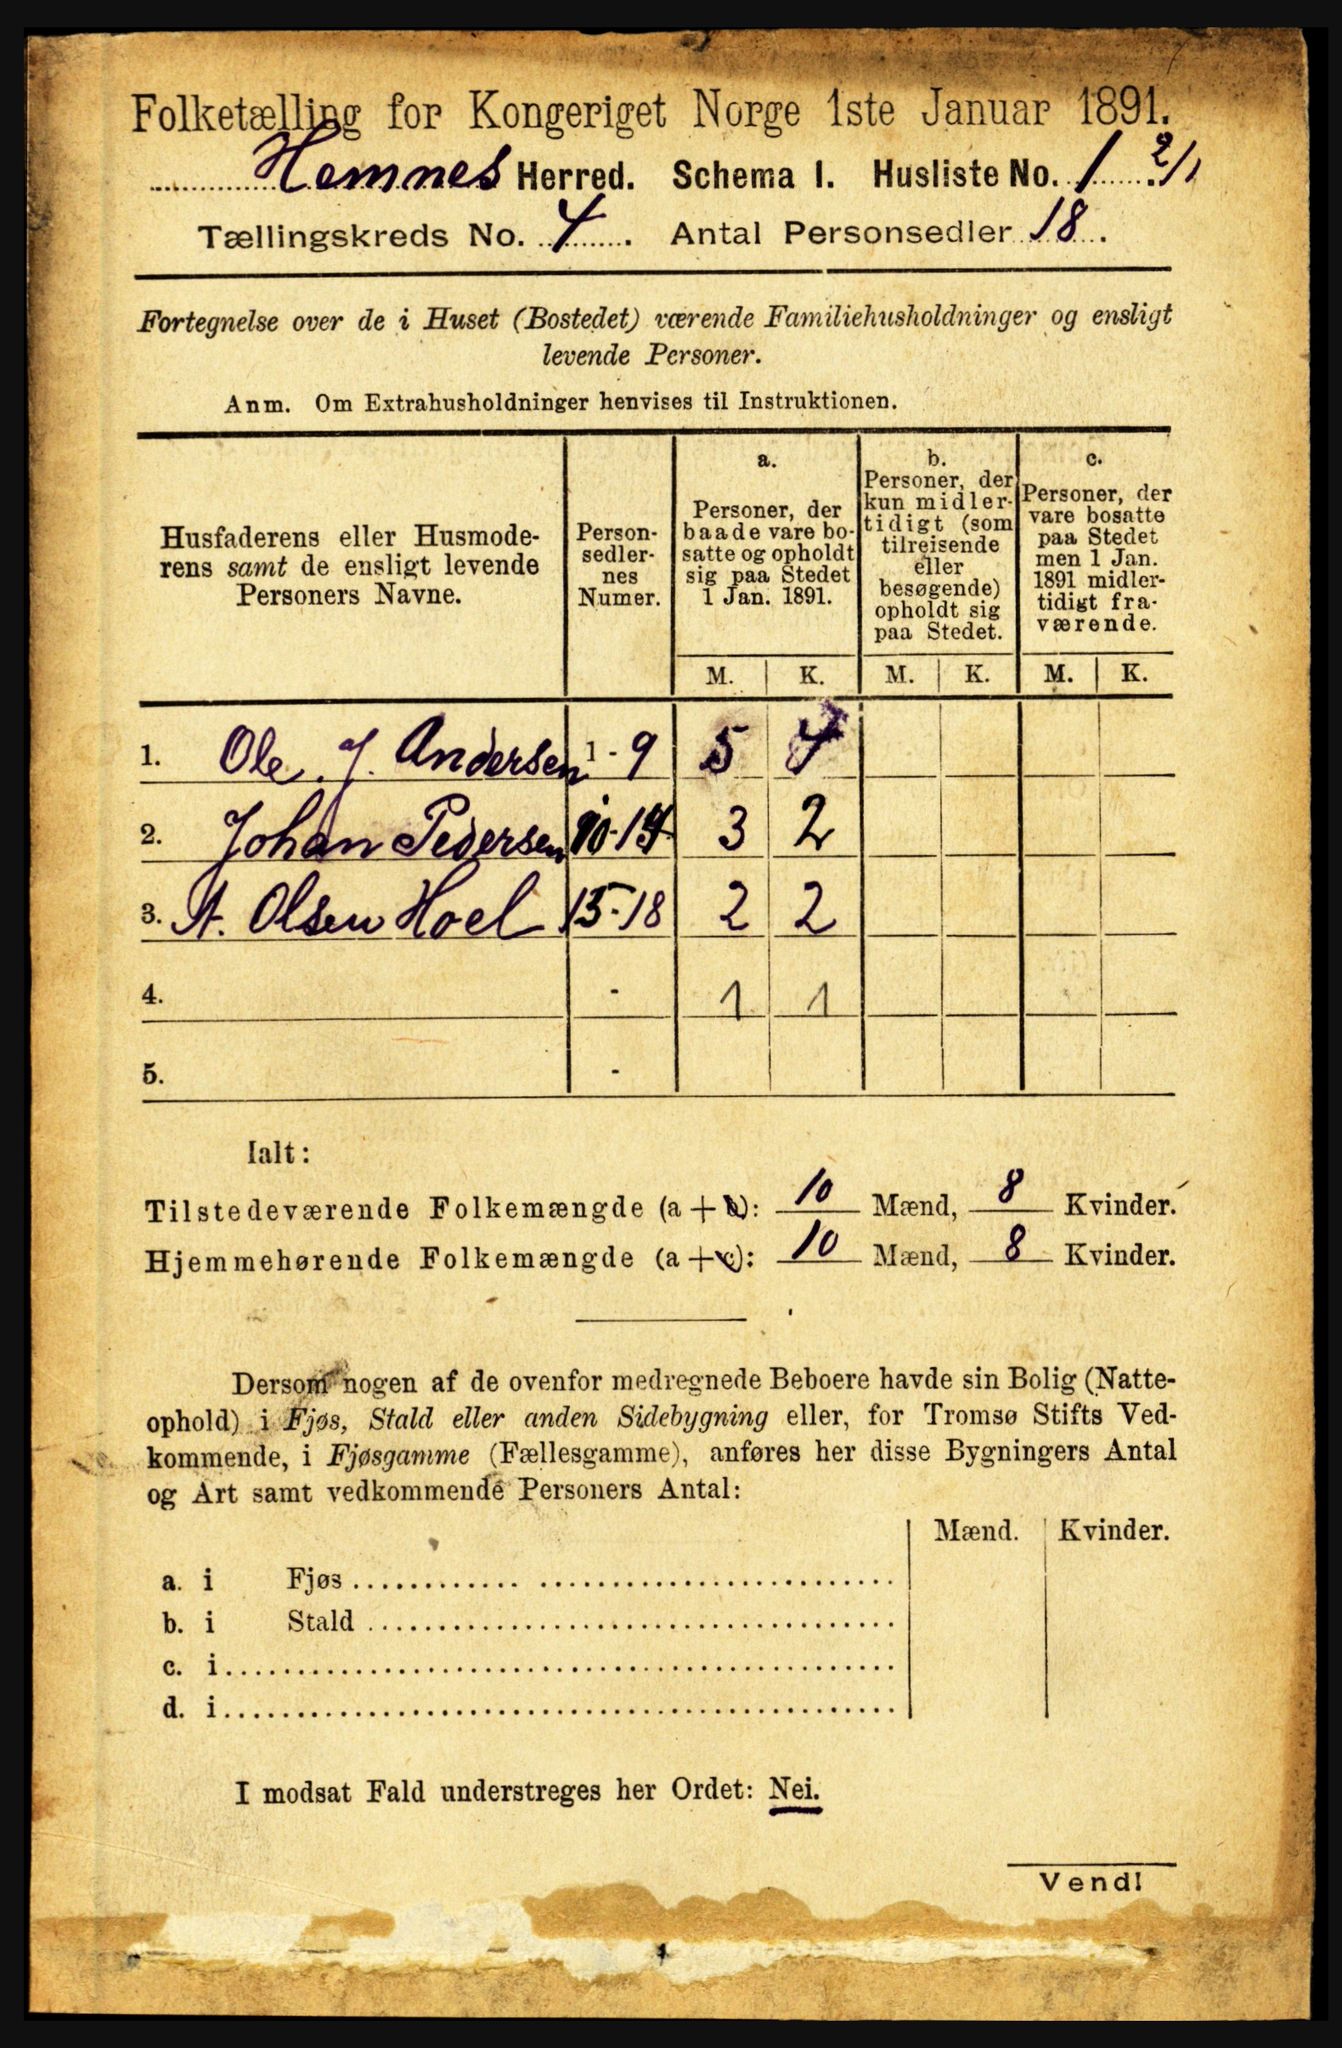 Folketælling for Kongeriget Norge 1ste Januar 1891.
Hemnes Herred. Schema I. Husliste No. 1 2/1
Tællingskreds No. 4. Antal Personsedler 18.
Fortegnelse over de i Huset (Bostedet) værende Familiehusholdninger og ensligt
levende Personer.
Anm. Om Extrahusholdninger henvises til Instruktionen.
Husfaderens eller Husmode-
rens samt de ensligt levende
Personers Navne.
Person-
sedler-
nes
Numer.
a.
Personer, der
baade vare bo-
satte og opholdt
sig paa Stedet
1 Jan. 1891.
b.
Personer, der
kun midler-
tidigt (som
tilreisende
eller
besøgende)
opholdt sig
paa Stedet.
c.
Personer, der
vare bosatte
paa Stedet
men 1 Jan.
1891 midler-
tidigt fra-
værende.
M. K. M. K. M. K.
1. Ole. J. Andersen 1-9 5 4
2. Johan Pedersen 10-14 3 2
3. A. Olsen Hoel 15-18 2 2
4. - 1 1
5. -
Ialt:
Tilstedeværende Folkemængde (a + b): 10 Mænd, 8 Kvinder.
Hjemmehørende Folkemængde (a + c): 10 Mænd, 8 Kvinder.
Dersom nogen af de ovenfor medregnede Beboere havde sin Bolig (Natte-
ophold) i Fjøs, Stald eller anden Sidebygning eller, for Tromsø Stifts Ved-
kommende, i Fjøsgamme (Fællesgamme), anføres her disse Bygningers Antal
og Art samt vedkommende Personers Antal:
Mænd. Kvinder.
a. i Fjøs
b. i Stald
c. i
d. i
I modsat Fald understreges her Ordet: Nei.
Vend!